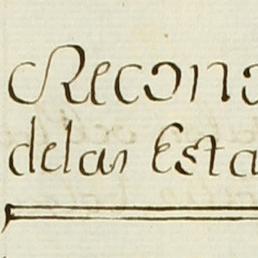 Recono
delas Esta